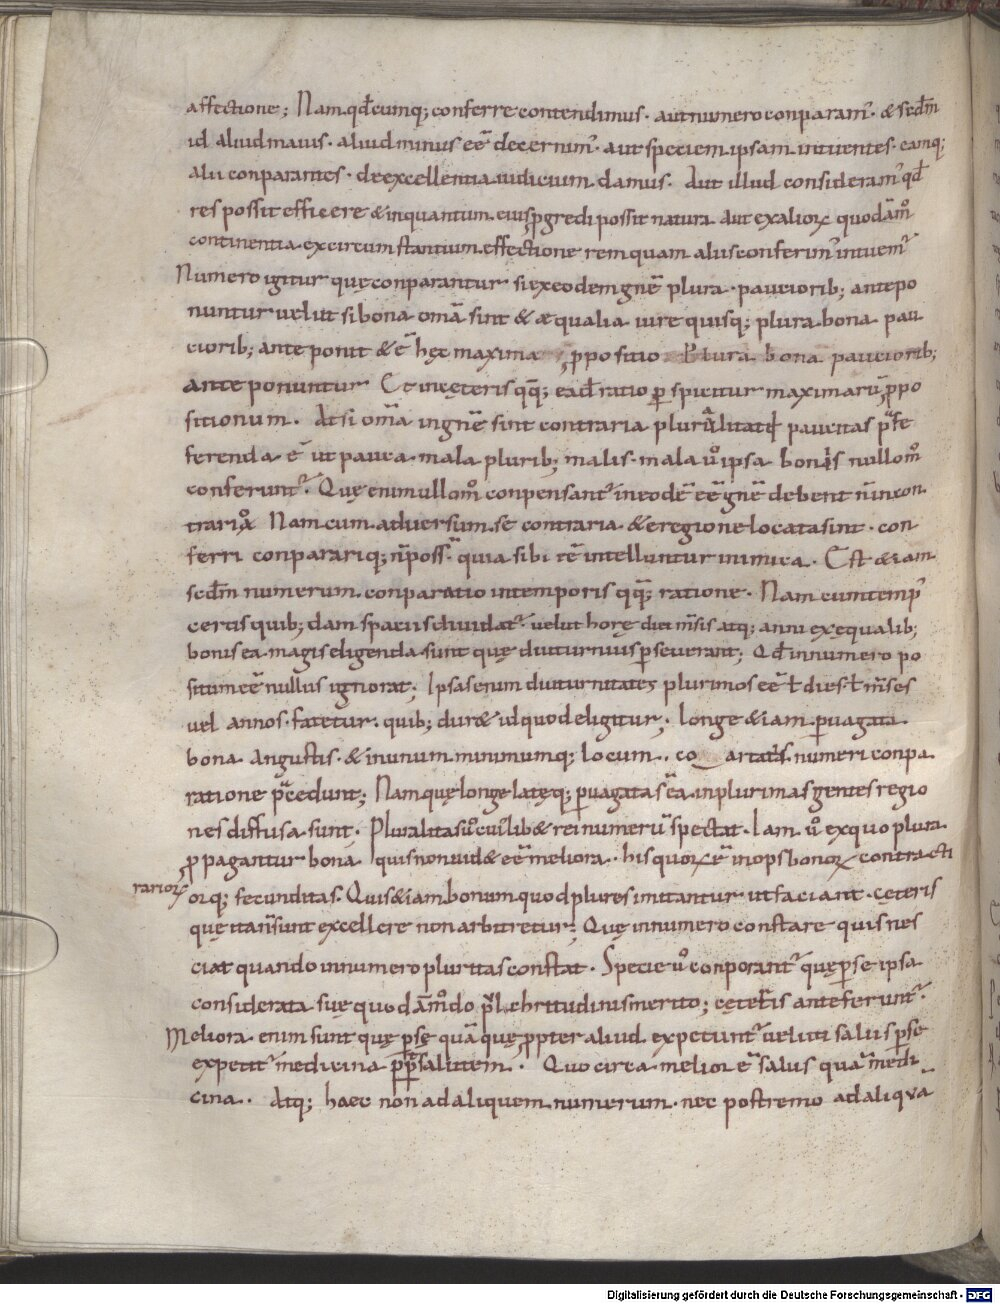 affectione; Nam qđcumq; conferre contendimus. aut numero conparam̉. & scd̄m
id aliud maius. aliud minus eē decernim̉. aut speciem ipsam intuentes. eamq;
alii conparantes. de excellentia iudicium damus. Aut illud consideram̉ qđ
res possit efficere & inquantum eius ꝓgredi possit natura Aut ex alioꝝ quodāmͦ
continentia ex circumstantium effectione rem quam aliis conferim̉ intuem̉
Numero igitur quę conparantur si ex eodem gnē̄ plura pauciorib; antepo
nuntur velut si bona om̄a sint & æqualia iure quisq; plura bona pau
ciorib; anteponit & ē hęc maxima ꝓpositio Plura bona pauciorib;
anteponuntur Et in cęteris qq; ead̄ ratio ꝑspicitur maximarū ꝓpo
sitionum. At si om̄a in gnē sint contraria pluralitati paucitas p̄fe
ferenda ē ut pauca mala plurib; malis. mala ů ipsa bonis nullomͦ
conferunt̉. Quę enim ullomͦ conpensant̉ in eodē eē gnē debent n̄ in con
trariͦ Nam cum adversum se contraria & e regione locata sint. con
ferri conparariq; n̄ poss̄. quia sibi rē intelluntur inimica. Est &iam
scd̄m numerum conparatio in temporis qq; ratione. Nam cum temp̉
certis quib;dam spaciis dividat̉ velut horę diei m̄sis atq; anni ex ęqualib;
bonis ea magis eligenda sunt quę diuturnius ꝑseverant; Qđ in numero po
situm eē nullus ignorat; Ipsas enim diuturnitates plurimos eē ł dies ł m̄ses
vel annos fatetur. quib; dur& id quod eligitur; longe &iam ꝑvagata
bona angustis & in unum minimumq; locum .. co artatis numeri conpa
ratione p̄cedunt; Nam quę longe latęq; ꝑvagata s̄ ea in plurimas gentes regio
nes diffusa sunt; Pluralitas ů cuilib& rei numerū spectat. Iam ů ex quo plura
ꝓpagantur bona quis non vid& eē meliora. his quoꝝ ē inops bonoꝝ contracti
rarioꝝ
orq; fecunditas. Quis &iam bonum quod plures imitantur ut faciant ceteris
quę ita n̄ sunt excellere non arbitretur; Quę in numero constare quis nes
ciat quando in numero pluritas constat. Specie ů conporant̉ quę ꝑ se ipsa
considerata suę quodāmͦdo p̄lchritudinis merito; cęteris anteferunt̉.
Meliora enim sunt quę ꝑ sę quā quę ꝓpter aliud expetunt̉ veluti salus ꝑ se
expetit̉ medicina ꝓp̄ salutem. Quocirca melior ē salus quā medi
cina. Atq; haec non ad aliquem numerum. nec postremo ad aliquā